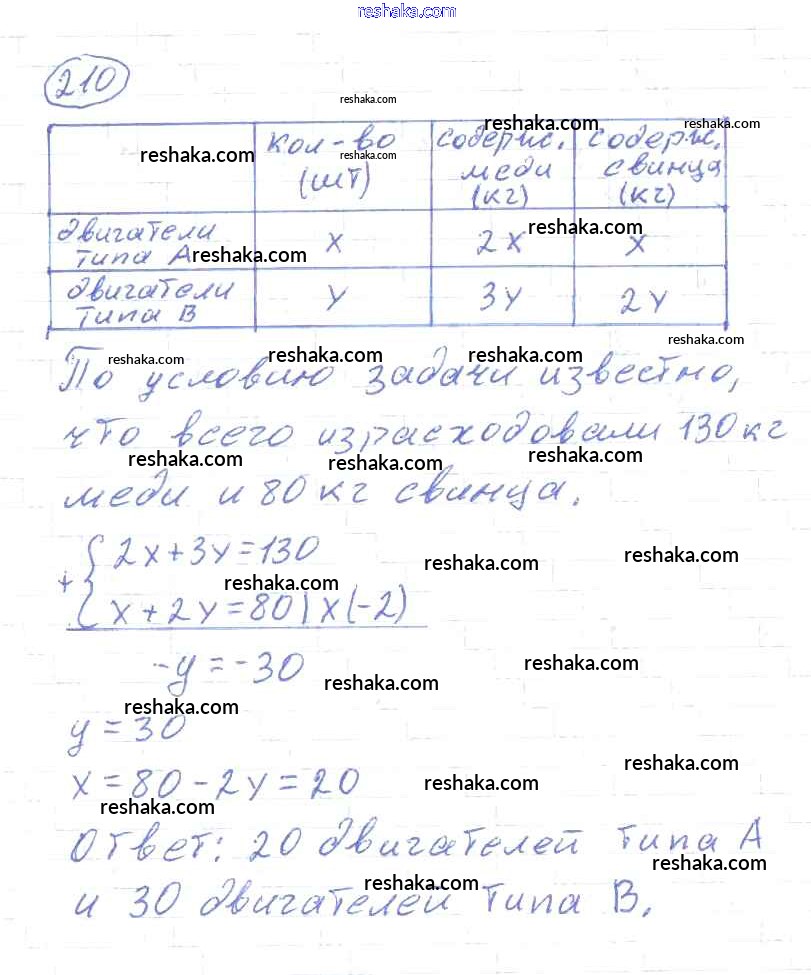 reshaka.com
210
reshaka.com
кол-во (шт) содерж. меди (кг) содерж. свинца (кг)
reshaka.com reshaka.com reshaka.com reshaka.com
двигатели типа А x 2x x
reshaka.com reshaka.com
двигатели типа В y 3y 2y
reshaka.com
reshaka.com reshaka.com reshaka.com
По условию задачи известно,
что всего израсходовали 130 кг
reshaka.com reshaka.com reshaka.com
меди и 80 кг свинца.
+{ 2x+3y=130
reshaka.com reshaka.com reshaka.com
x+2y=80 | x(-2)
-y=-30
reshaka.com reshaka.com
reshaka.com
y=30
reshaka.com
x=80-2y=20
reshaka.com reshaka.com
Ответ: 20 двигателей типа А
reshaka.com reshaka.com
и 30 двигателей типа В.